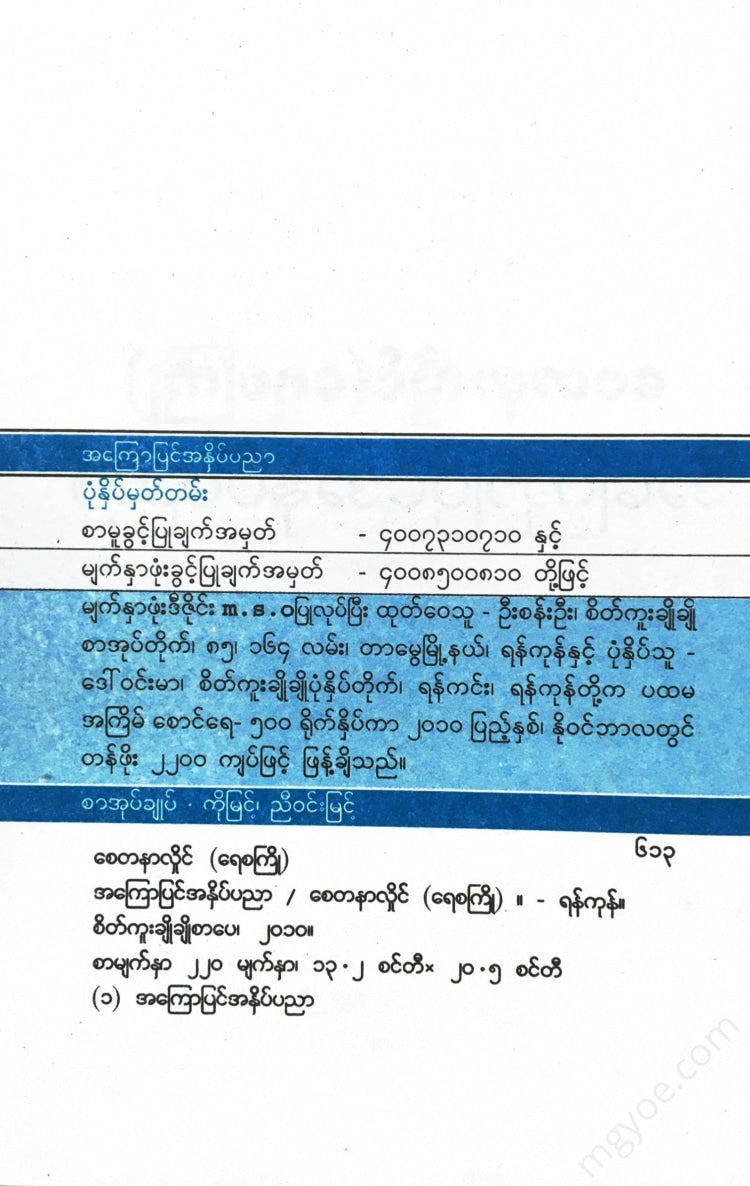 အကြောပြင်အနှိပ်ပညာ
ပုံနှိပ်မှတ်တမ်း
စာမူခွင့်ပြုချက်အမှတ် - ၄၀၀၇၃၁၀၇၁၀ နှင့်
မျက်နှာဖုံးခွင့်ပြုချက်အမှတ် - ၄၀၀၈၅၀၀၈၁၀ တို့ဖြင့်
မျက်နှာဖုံးဒီဇိုင်း m.s.oပြုလုပ်ပြီး ထုတ်ဝေသူ - ဦးစန်းဦး၊ စိတ်ကူးချိုချို
စာအုပ်တိုက်၊ ၈၅၊ ၁၆၄ လမ်း၊ တာမွေမြို့နယ်၊ ရန်ကုန်နှင့် ပုံနှိပ်သူ -
ဒေါ်ဝင်းမာ၊ စိတ်ကူးချိုချိုပုံနှိပ်တိုက်၊ ရန်ကင်း၊ ရန်ကုန်တို့က ပထမ
အကြိမ် စောင်ရေ- ၅၀၀ ရိုက်နှိပ်ကာ ၂၀၁၀ ပြည့်နှစ်၊ နိုဝင်ဘာလတွင်
တန်ဖိုး ၂၂၀၀ ကျပ်ဖြင့် ဖြန့်ချိသည်။
စာအုပ်ချုပ် - ကိုမြင့်၊ ညီဝင်းမြင့်
၆၁၃
စေတနာလှိုင် (ရေစကြို)
အကြောပြင်အနှိပ်ပညာ / စေတနာလှိုင် (ရေစကြို) ။ - ရန်ကုန်။
စိတ်ကူးချိုချိုစာပေ၊ ၂၀၁၀။
စာမျက်နှာ ၂၂၀ မျက်နှာ၊ ၁၃.၂ စင်တီ× ၂၀.၅ စင်တီ
(၁) အကြောပြင်အနှိပ်ပညာ
mgyoe.com